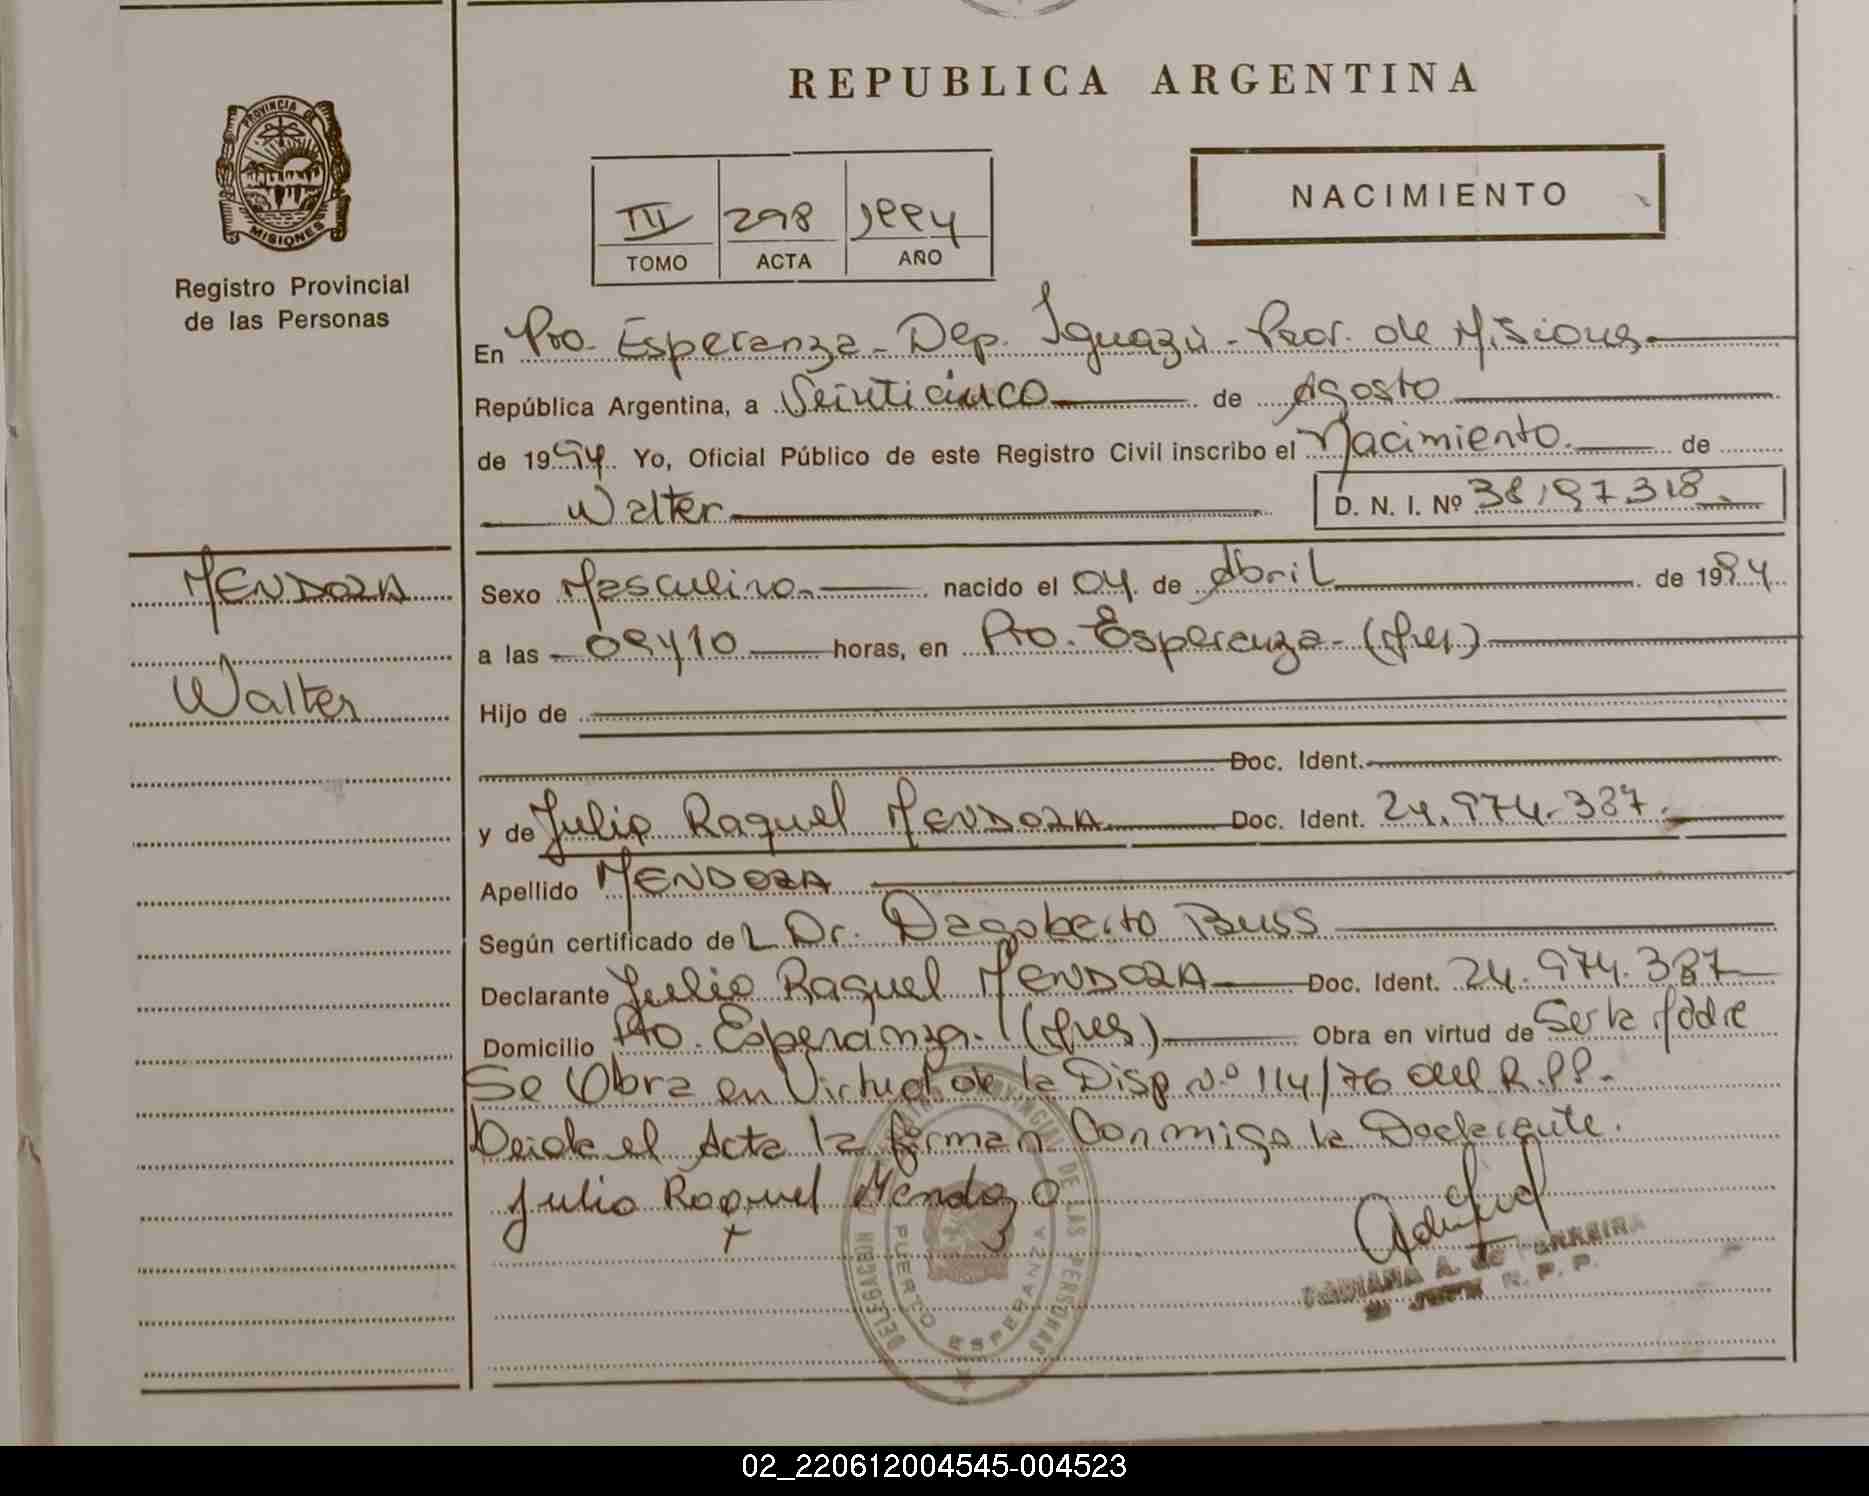 REPUBLICA ARGENTINA
PROVINCIA DE MISIONES
Registro Provincial
de las Personas
III 298 1994
TOMO ACTA AÑO
NACIMIENTO
En Pto. Esperanza - Dep. Iguazú - Prov. de Misiones
República Argentina, a Veinticinco de Agosto
de 1994 Yo, Oficial Público de este Registro Civil inscribo el Nacimiento. de
Walter D. N. I. Nº 38.197.318
MENDOZA
Walter
Sexo Masculino nacido el 04 de Abril de 1994
a las 09y10 horas, en Pto. Esperanza - (Mnes)
Hijo de
Doc. Ident.
y de Julia Raquel MENDOZA Doc. Ident. 24.974.387.
Apellido MENDOZA
Según certificado del Dr. Dagoberto Buss
Declarante Julia Raquel MENDOZA Doc. Ident. 24.974.387
Domicilio Pto. Esperanza. (Mnes) Obra en virtud de Ser la Madre
Se Obra en Virtud de la Disp Nº 114/76 del R.P.P.
Leida el Acta la firman Conmigo la Declarante.
Julia Raquel Mendoza
DELEGACION PROVINCIAL DE LAS PERSONAS
PUERTO ESPERANZA
A. de FERREIRA
R. P. P.
02_220612004545-004523